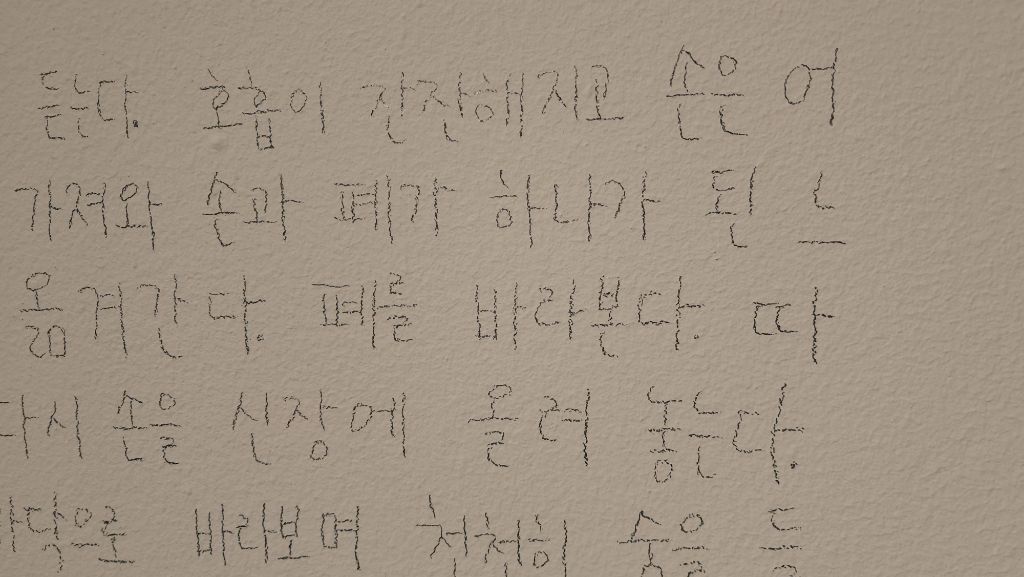 듣는다. 호흡이 잔잔해지고 손은 어
가져와 손과 폐가 하나가 된 느
옮겨간다. 폐를 바라본다. 따
다시 손을 심장에 올려 놓는다.
바닥으로 바라보며 천천히 숨을 들